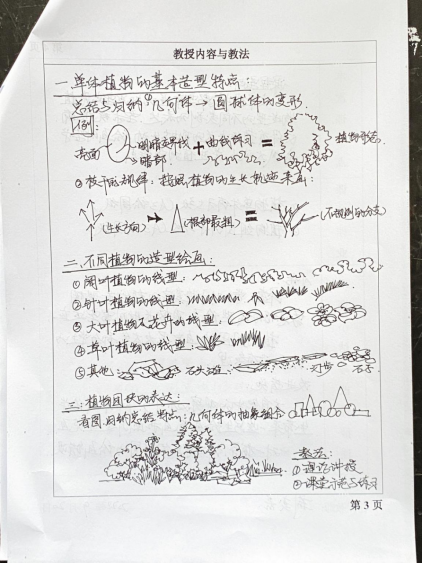 教授内容与教法
一.单体植物的基本造型特点:
总结与归纳①几何体→圆球体的变形.
例:
亮面 明暗交界线 暗部 + 曲线练习 = 植物形态.
②枝干的规律:按照植物的生长轨迹来画:
(生长方向) → (根部最粗) = (不规则的分支)
二.不同植物的造型绘画:
①阔叶植物的线型:
②针叶植物的线型:
③大叶植物及花卉的线型:
④草叶植物的线型:
⑤其他: 石头 汀步 石子
三.植物团状的表达:
看图归纳总结 几何体的抽象组合
表达:
①理论讲授
②课堂示范与练习
第 3 页